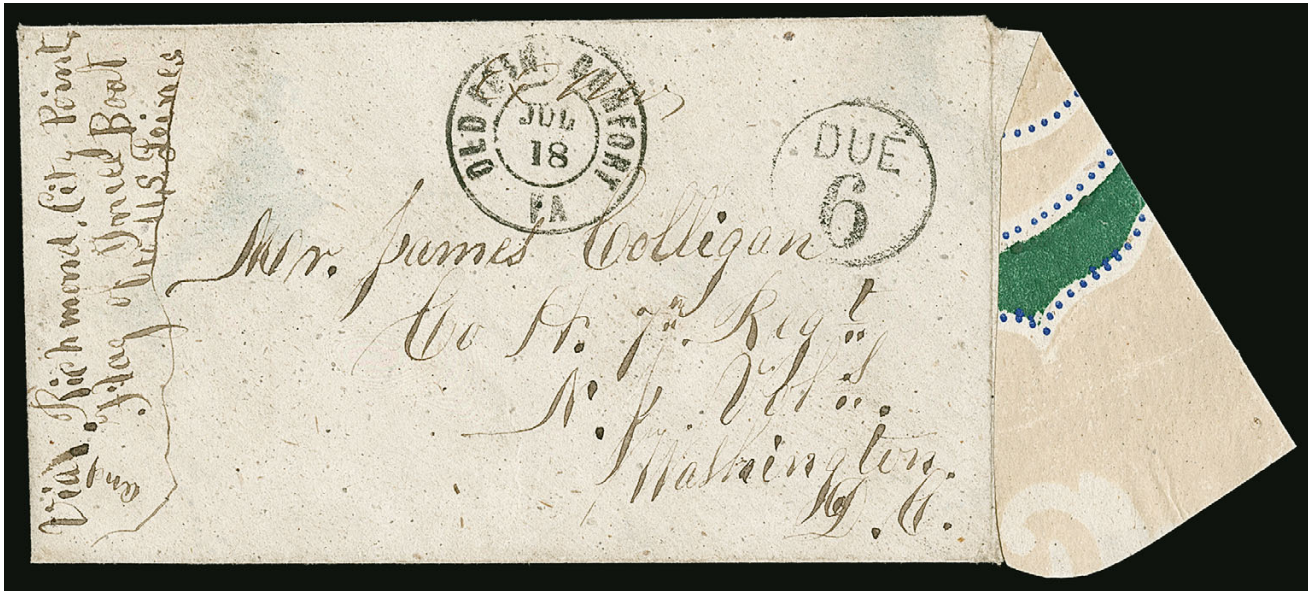 via. Richmond. City Point
and flag of Truce Boat
to the US Lines
OLD POINT COMFORT
JUL
18
VA
DUE
6
Mr. James Colligan
Co H. 7th Regt
N. J. Vols.
Washington.
D. C.